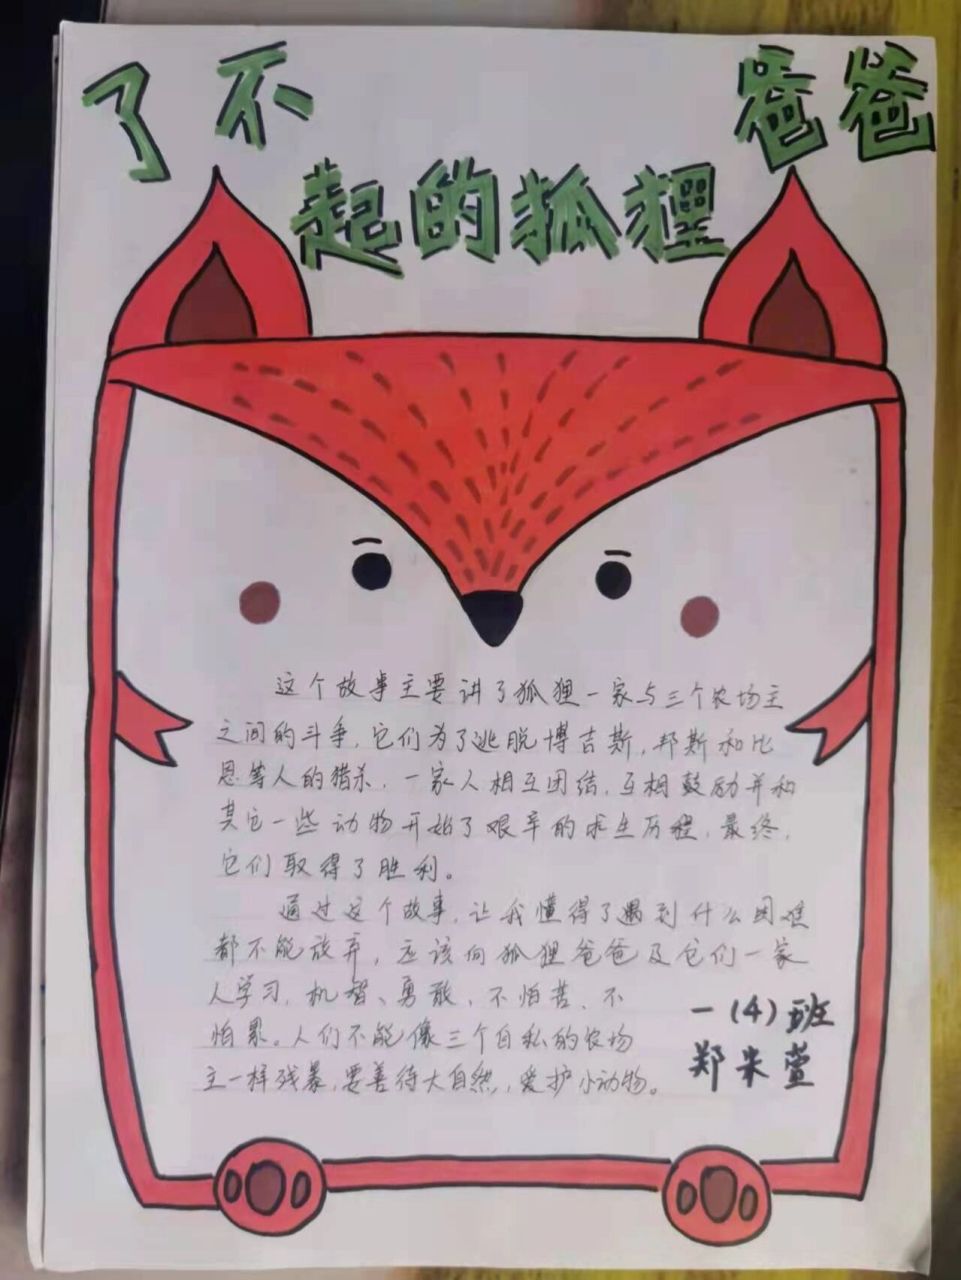 了不起的狐狸爸爸
这个故事主要讲了狐狸一家与三个农场主
之间的斗争,它们为了逃脱博吉斯,邦斯和比
恩等人的猎杀,一家人相互团结,互相鼓励并和
其它一些动物开始了艰辛的求生历程,最终,
它们取得了胜利。
通过这个故事,让我懂得了遇到什么困难
都不能放弃,应该向狐狸爸爸及它们一家
人学习,机智、勇敢,不怕苦、不
怕累。人们不能像三个自私的农场
主一样残暴,要善待大自然,爱护小动物。
一(4)班
郑米萱